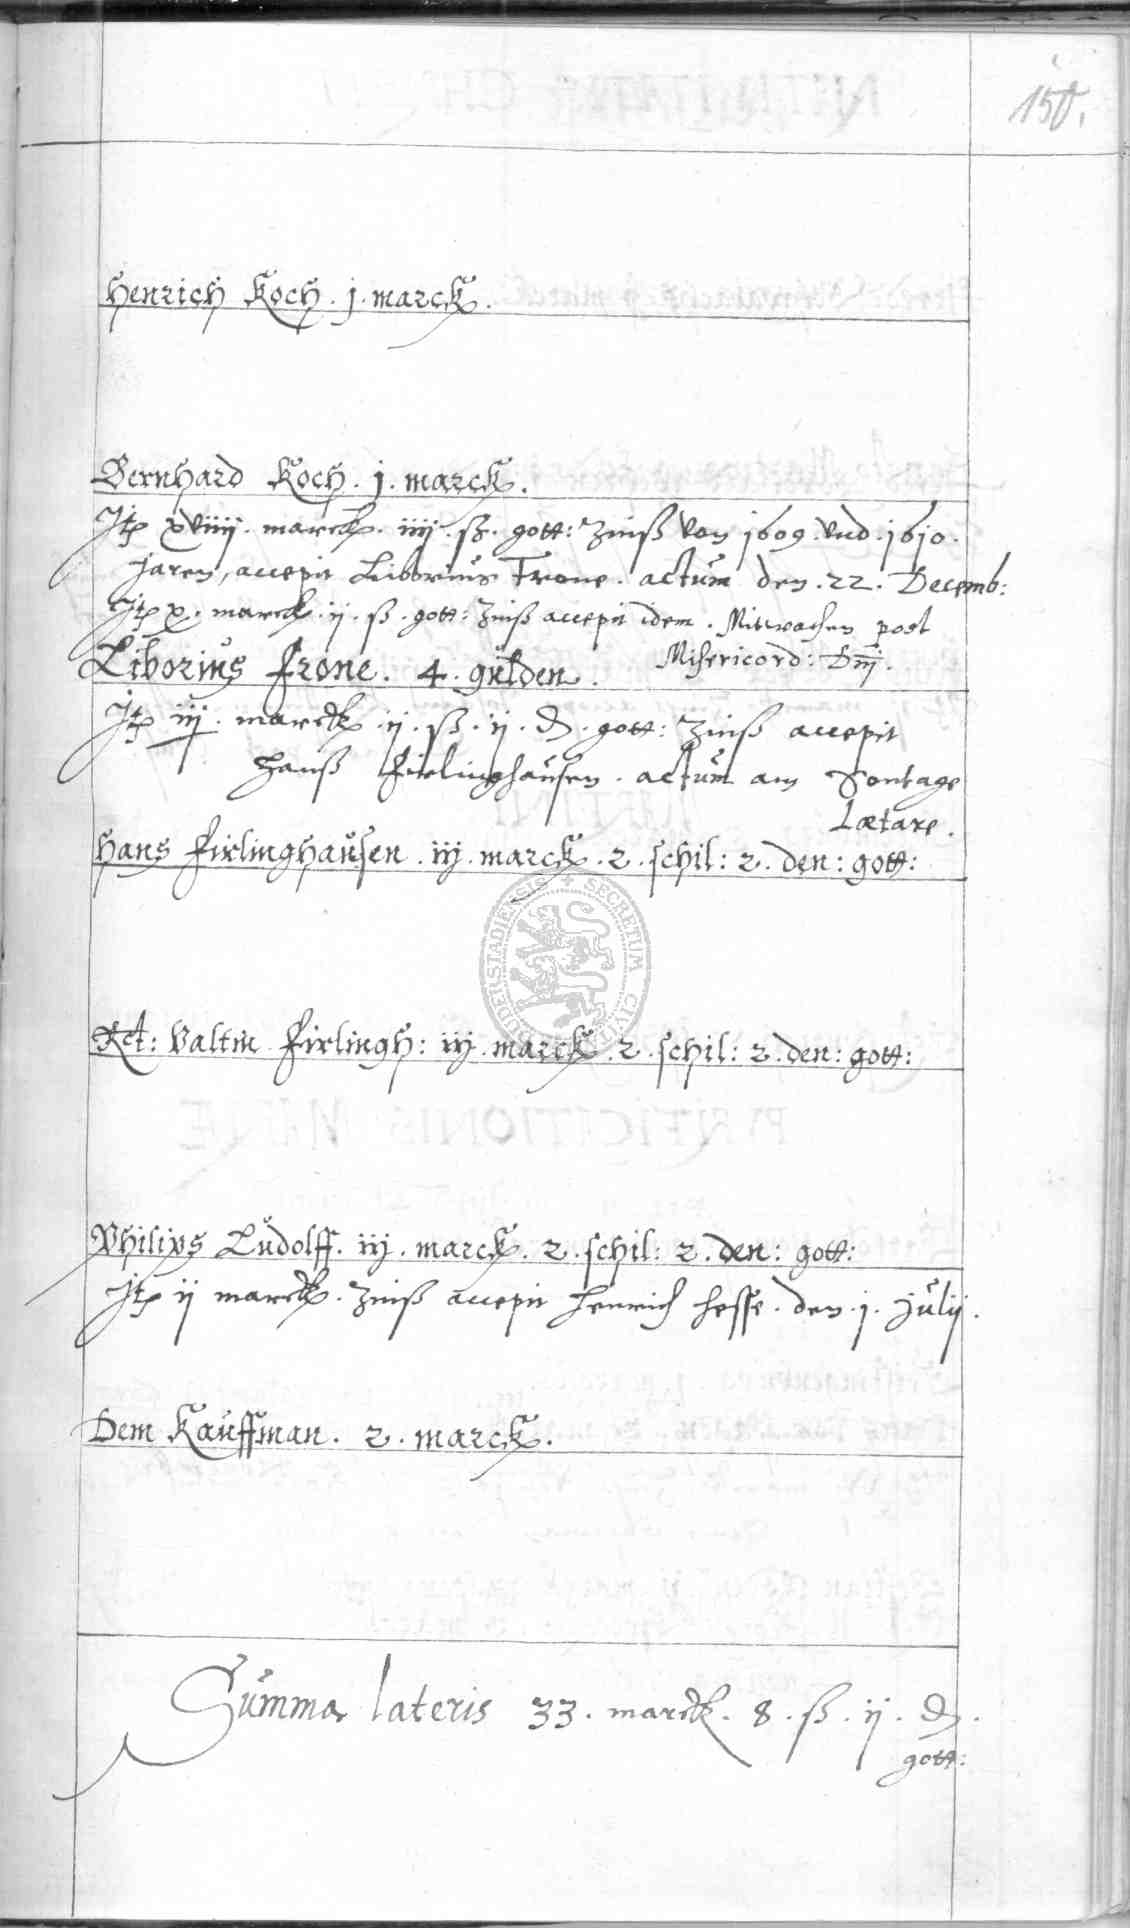 150.
Henrich Koch. j. marck.
Bernhard Koch. j. marck.
Itp xviiij. marck. iiij. ß. gott: Zinß von 1609. vnd. 1610.
Jaren, accepit Liborius Frone. actum den. 22. Decemb:
Itp x. marck. ij. ß. gott: Zinß accepit idem. Mitwochen post
Misericord: Dnj.
Liborius Frone. 4. gulden.
Itp iij. marck. ij. ß. ij. ₰. gott: Zinß accepit
Hanß Firlinghausen. actum am Sontage
Lætare.
Hans Firlinghausen. iij. marck. 2. schil: 2. den: gott:
Rct: Valtin Firlingh: iij. marck. 2. schil: 2. den: gott:
Philips Ludolff. iij. marck. 2. schil: 2. den: gott:
Itp ij marck. Zinß accepit Henrich Hesse. den. j. Julij.
Dem Kauffman. 2. marck.
Summa lateris 33. marck. 8. ß. ij. ₰.
gott: